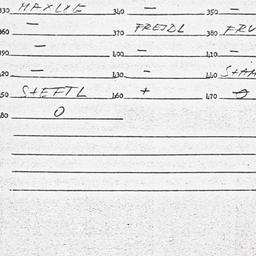 330 MAXLXE 340 — 350 —
360 — 370 FREJDL 380 FRV
390 — 400 — —
420 — 430 — 440 STAA
450 STEFTL 460 + 470 0
480 0